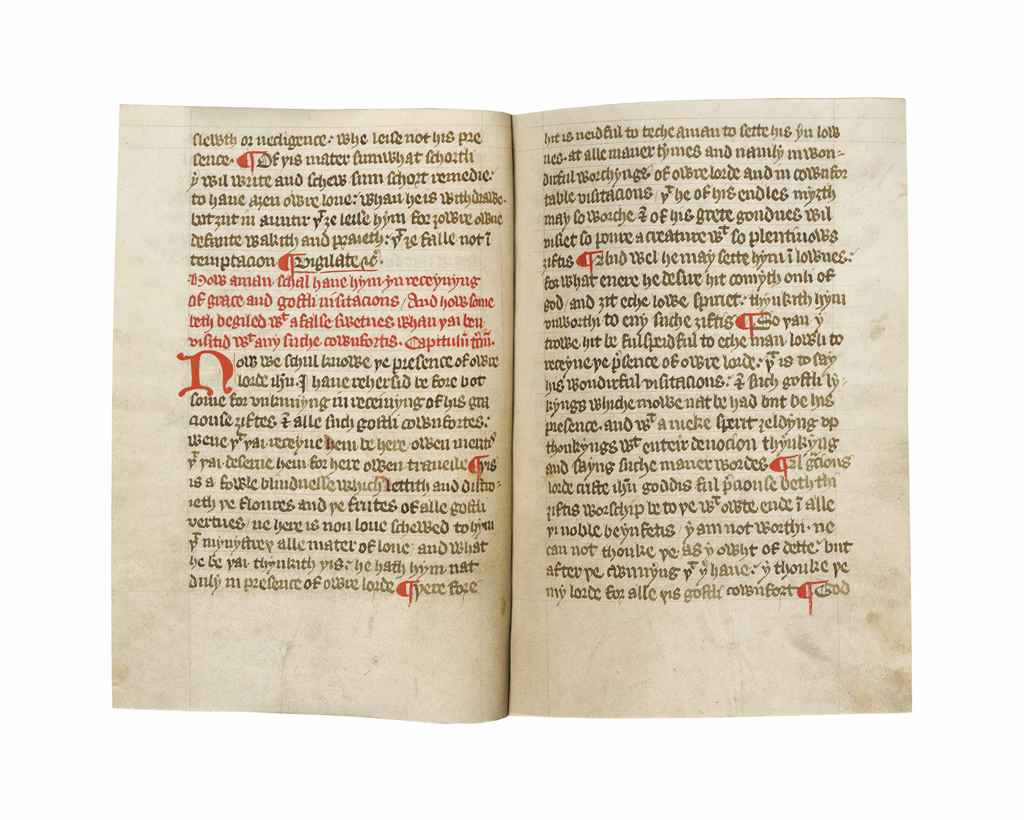 slewth or necligence· whe leise not his pre
sence· ¶ Of yis mater sumwhat schortli
ẏ wil write and schew sum schort remedie·
to haue aȝen owre loue· whan he is withdrawe·
but ȝit in auntir yͭ ȝe leise hym for ȝowre owne
defaute wakith and praieth· yͭ ȝe falle not ī
temptacion ¶ Vigilate ⁊c̄·
How aman schal haue hym yn receyuyng
of grace and gostli uisitacions / And how some
beth begiled wͭ a false swetnes whan yai ben
visitid wͭ any suche cownfortis· Capitulū
Now we schul knowe ye presence of owre
lorde ihū· I haue rehersid be fore bot
some for vnkunnyng in receiuyng of his gra
ciouse ȝiftes ⁊ alle such gostli cownfortes·
wene yͭ yai receyue hem be here owen
yͭ yai deserue hem for here owen traueile ¶ yis
is a fowle blindnesse which lettith and distro-
ieth ye floures and ye frutes of alle gostli
vertues / ne here is non loue schewed to hym
yͭ mynystrey alle mater of loue· and what
he be yai thynkith yis· he hath hym nat
duly in presence of owre lorde ¶ yere fore
hit is neidful to teche aman to sette his yn low
nes· at alle maner tymes and namly in won-
dirful worchynges of owre lorde and in cownfor
table visitacions / yͭ he of his endles myȝth
may so worche ⁊ of his grete goodnes wil
visiet so poure a creature wͭ so plentiuows
ȝiftis ¶ And wel he may sette hym ī lownes·
for what euere he desire hit comyth onli of
god / and ȝit eche lowe spiriet· thynkith hym
vnworthi to eny suche ȝiftis ¶ So yan ẏ
trowe hit be ful speidful to eche man lowli to
receyue ye p̄sence of owre lorde· yͭ is to say
his wondirful visitacions· ⁊ such gostli ly-
kyngs whiche mowe nat be had but be his
presence· and wͭ a meke spirit ȝeldyng vp
thonkyngs wͭ enteir deuocion thynkyng
and sayng suche maner wordes ¶ Al gͣcious
lorde criste ihū goddis ful p̄ciouse beth thi
ȝiftis worschip be to ye wͭ owte ende ī alle
yi noble beynfetis / ẏ am not worthi· ne
can not thonke ye as ẏ owht of dette· but
after ye cwnnyng yͭ ẏ haue· ẏ thonke ye
my lorde for alle yis gostli cownfort ¶ God